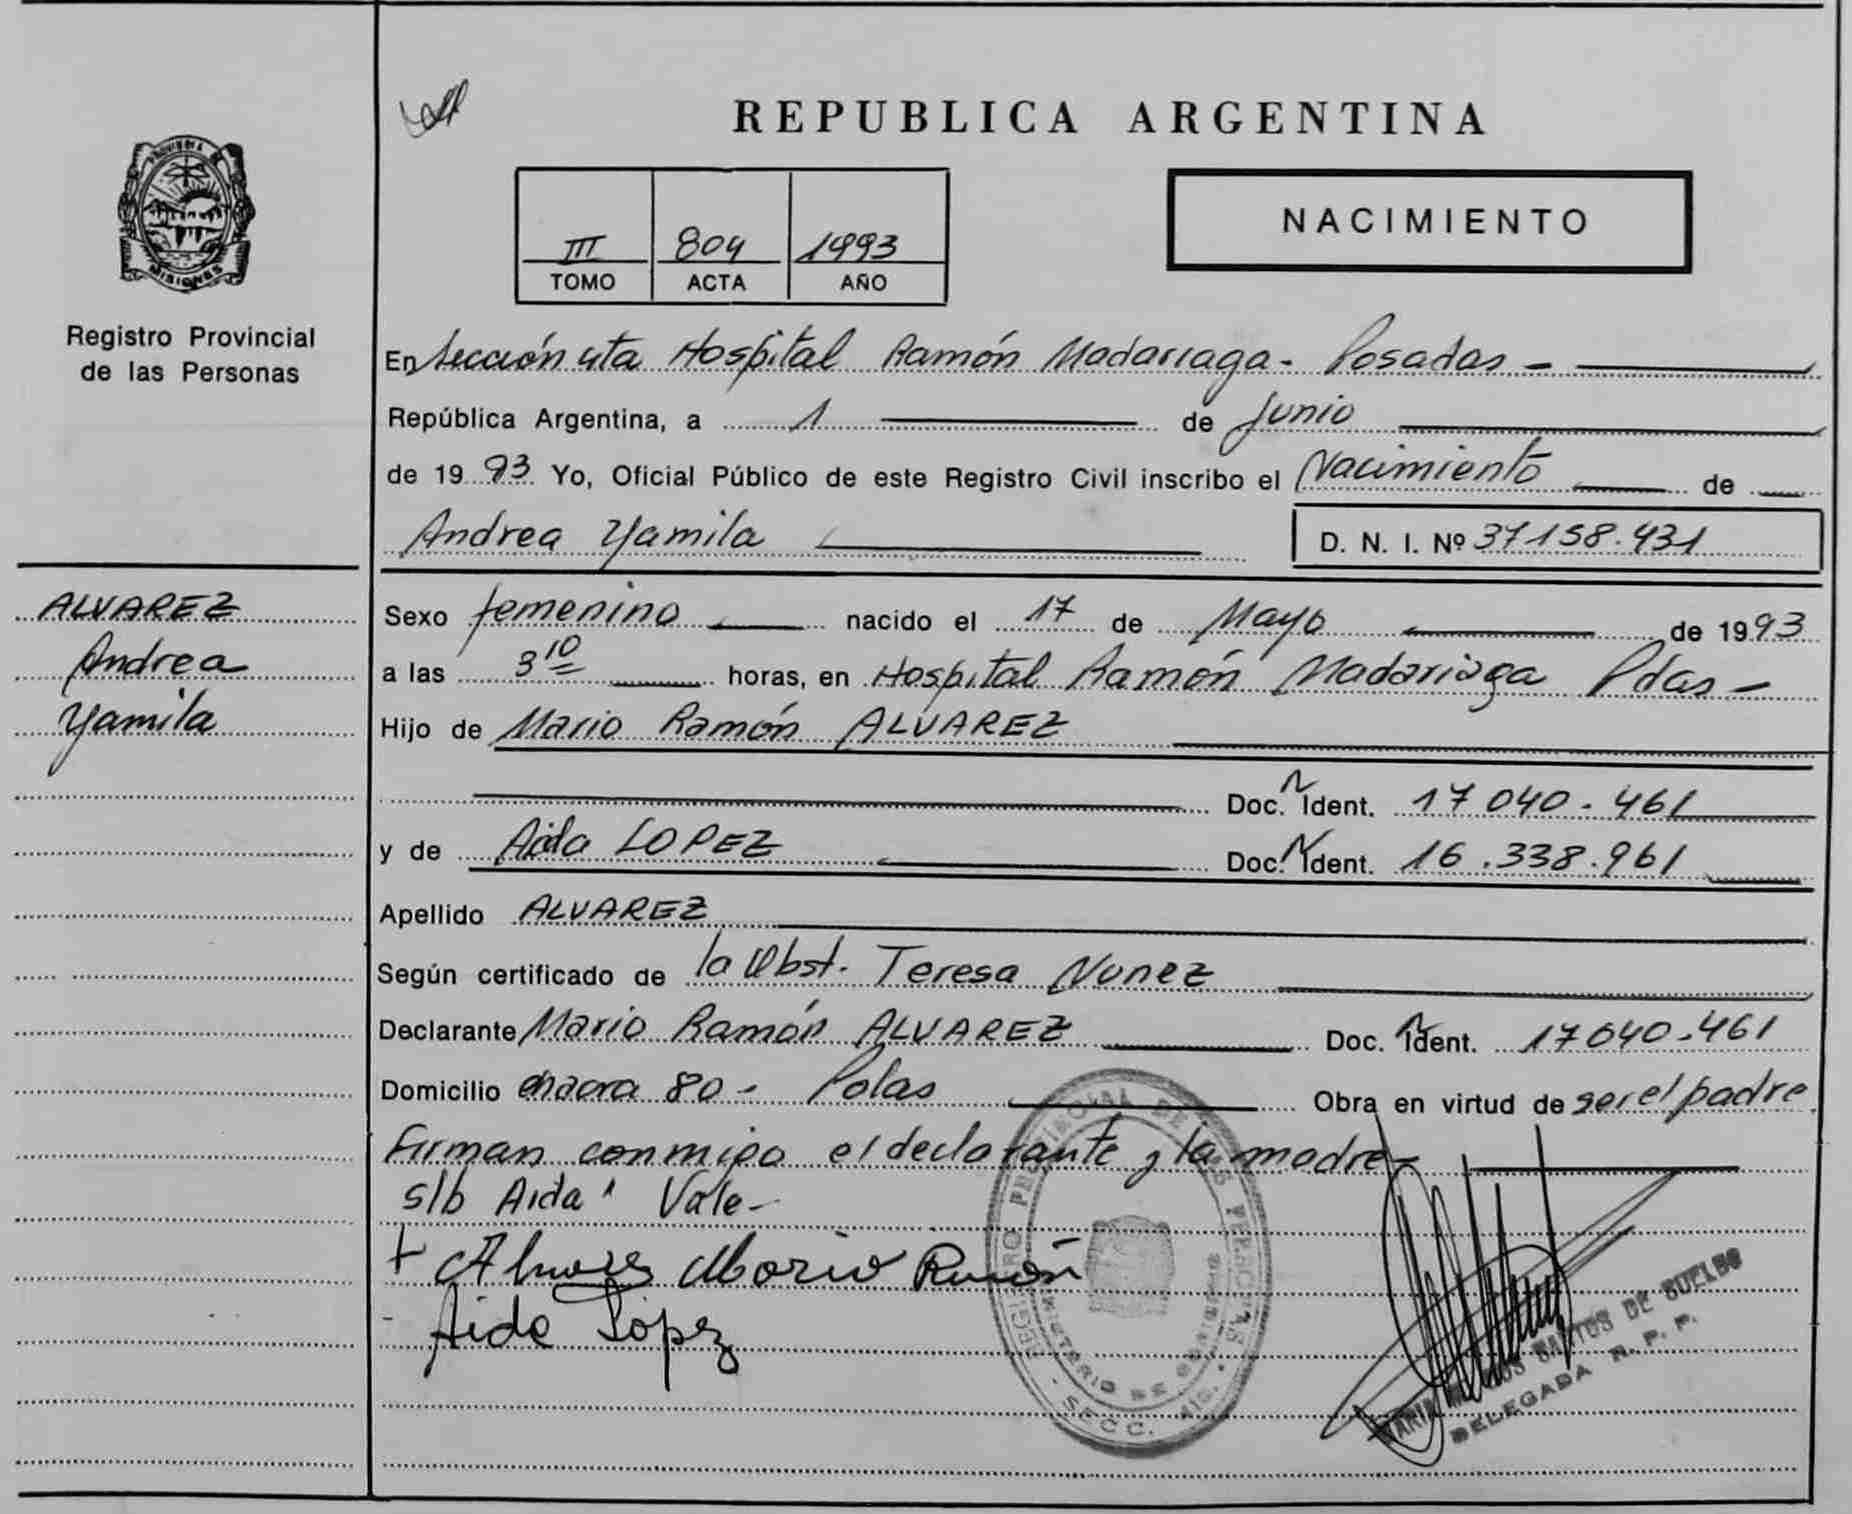 REPUBLICA ARGENTINA
PROVINCIA DE
MISIONES
Registro Provincial
de las Personas
III 804 1993
TOMO ACTA AÑO
NACIMIENTO
En Sección 4ta Hospital Ramón Madariaga - Posadas -
República Argentina, a 1 de Junio
de 1993 Yo, Oficial Público de este Registro Civil inscribo el Nacimiento de
Andrea Yamila D. N. I. Nº 37158.431
ALVAREZ
Andrea
Yamila
Sexo femenino nacido el 17 de Mayo de 1993
a las 3 10 horas, en Hospital Ramón Madariaga Pdas -
Hijo de Mario Ramón ALVAREZ
Doc. Ident. 17 040.461
y de Aida LOPEZ Doc. Ident. 16.338.961
Apellido ALVAREZ
Según certificado de la Obst. Teresa Nunez
Declarante Mario Ramón ALVAREZ Doc. Ident. 17040.461
Domicilio chacra 80 - Pdas Obra en virtud de ser el padre
Firman conmigo el declarante y la madre
s/b Aida Vale -
Alvares Mario Ramón
Aida López
REGISTRO PROVINCIAL DE LAS PERSONAS
MINISTERIO DE GOBIERNO
SANTOS DE CUELBO
DELEGADA R. P. P.